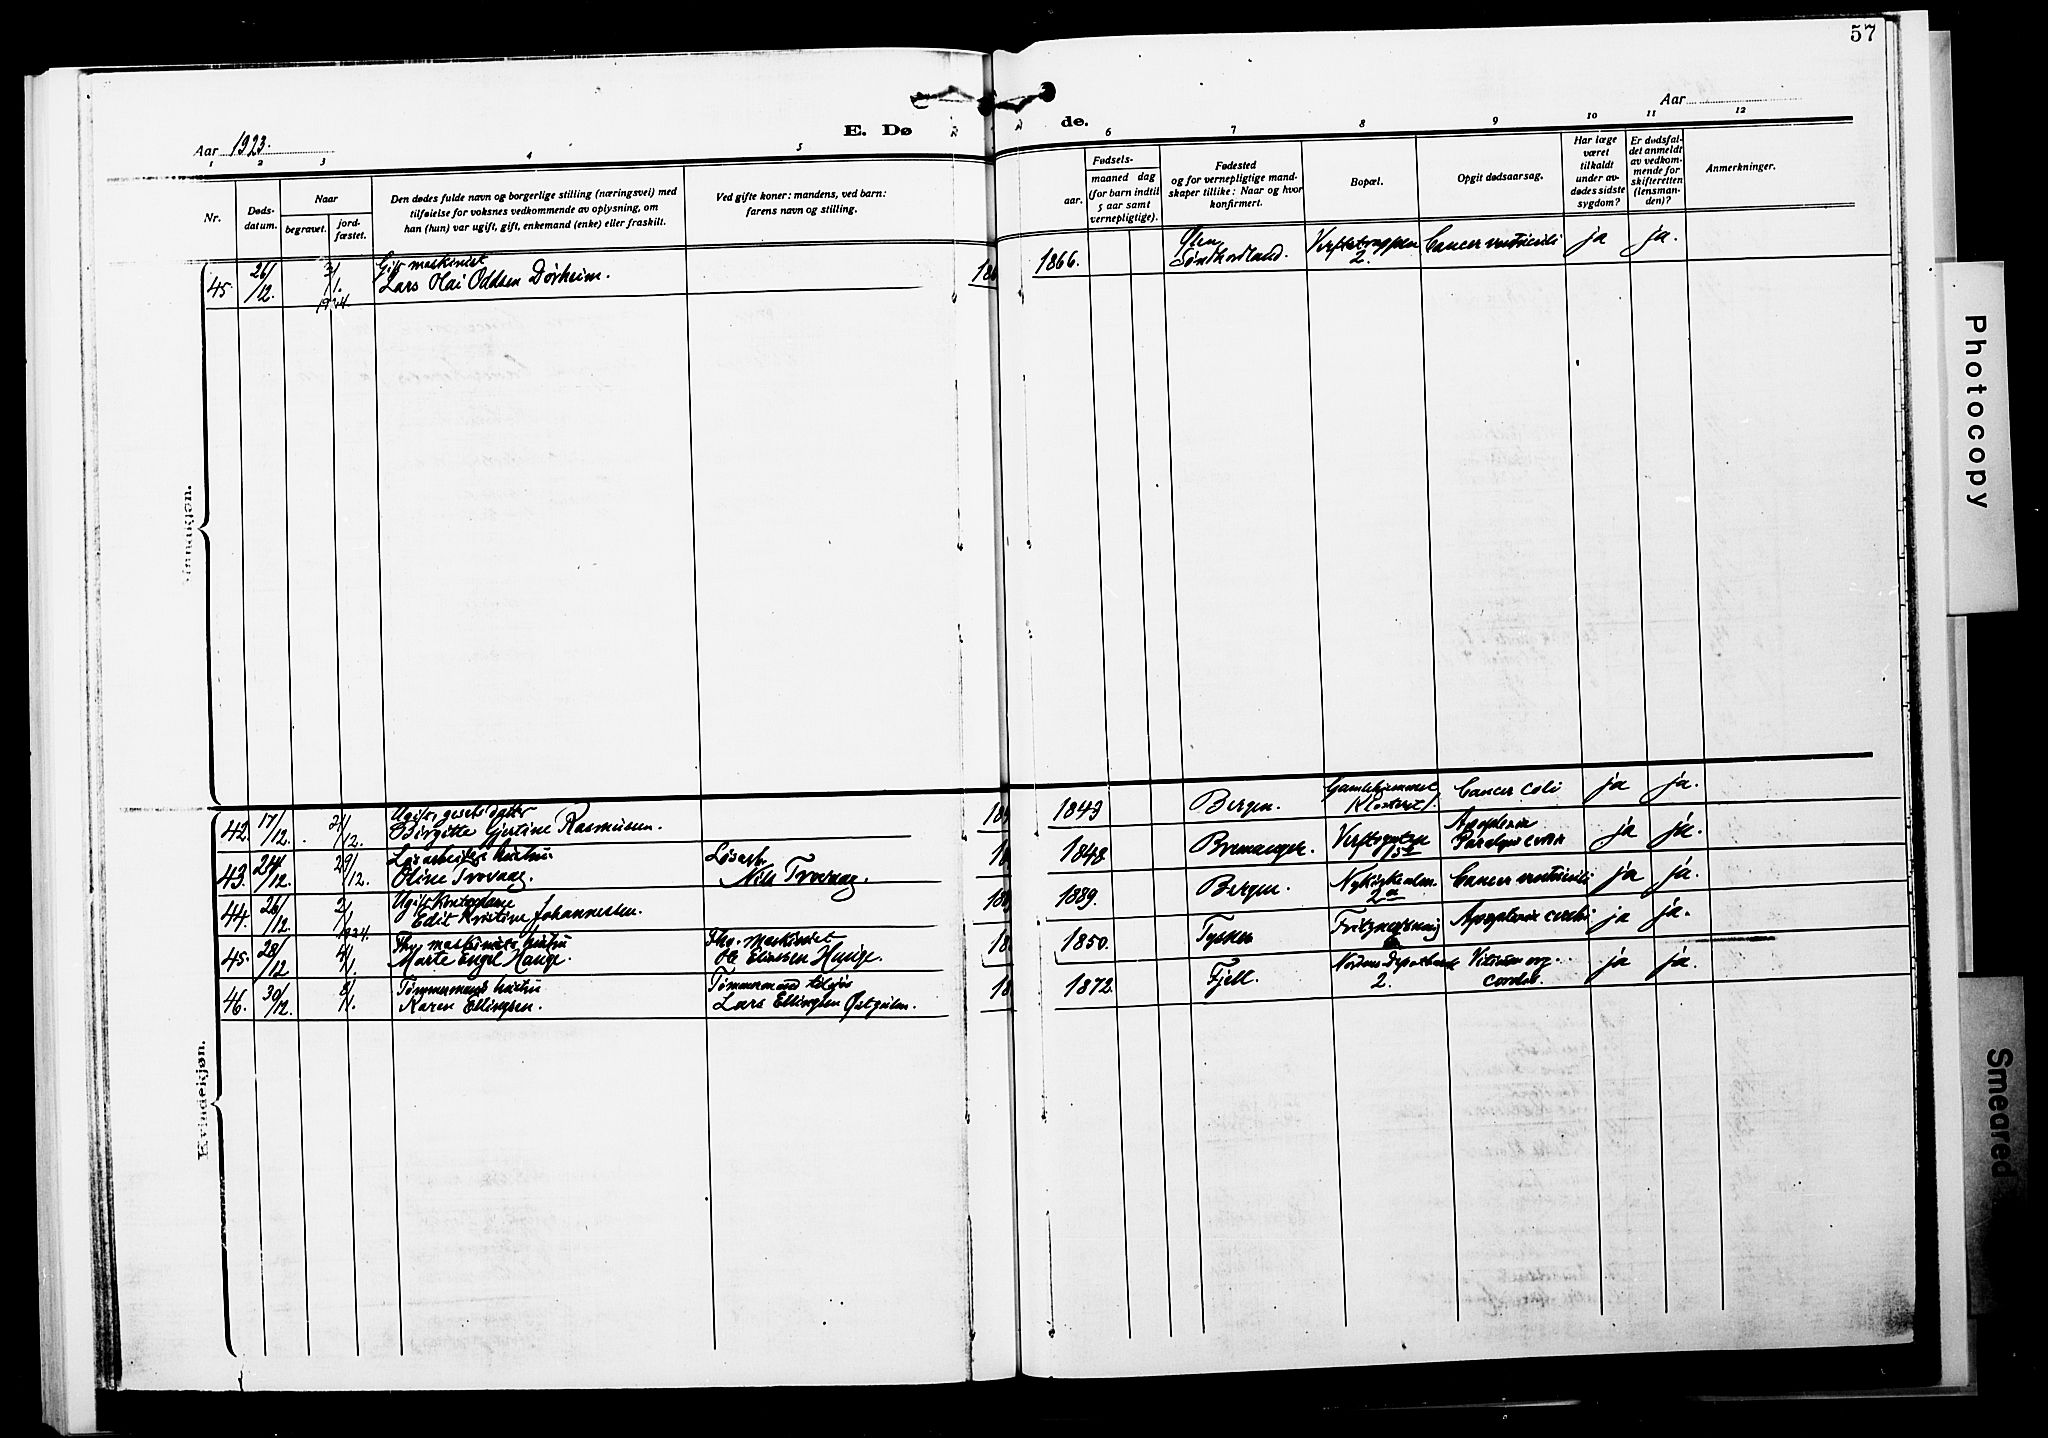 57
Aar 1923.
E. Dø
de.
Aar
1 2 3 4 5
6 7 8 9 10 11 12
Nr.
Døds-
datum.
Naar
begravet.
jord-
fæstet.
Den dødes fulde navn og borgerlige stilling (næringsvei) med
tilføielse for voksnes vedkommende av oplysning, om
han (hun) var ugift, gift, enkemand (enke) eller fraskilt.
Ved gifte koner: mandens, ved barn:
farens navn og stilling.
aar.
Fødsels-
maaned dag
(for barn indtil
5 aar samt
vernepligtige).
Fødested
og for vernepligtige mand-
skaper tillike: Naar og hvor
konfirmert.
Bopæl.
Opgit dødsaarsag.
Har læge
været
tilkaldt
under av-
dødes sidste
sygdom?
Er dødsfal-
det anmeldt
av vedkom-
mende for
skifteretten
(lensman-
den)?
Anmerkninger.
Gift maskinist
45. 26/12. 3/1. 1924. Lars Olai Oddsen Dørheim. 186
1866. Ølen Søndhordland. 2. Cancer ventriculi ja ja.
Kvindekjøn.
42. 17/12. 21/12. Birgitte Gjertine Rasmussen. 18
1843 Bergen. Gamlehjemmet Klosteret 1. Cancer coli ja ja.
Løsarbeiders hustru Løsarb.
43. 24/12. 29/12. Oline Trovaag. Nils Trovaag. 18
1848 Bremanger. Apoplexia ja ja.
44. 26/12. 2/1 1924. Edit Kristine Johannessen. 188
1889. Bergen. Cancer ventriculi ja ja.
45. 28/12 4/1. Marte Engel Hauge. Ole Eliassen Hauge. 18
1850. Apoplexia cerebri ja ja.
Tømmermands hustru Tømmermand
46. 30/12. 8/1. Karen Ellingsen. Lars Ellingsen 18
1872 Fjell. 2. Vitium org. cordis. ja ja.
Photocopy
Smeared